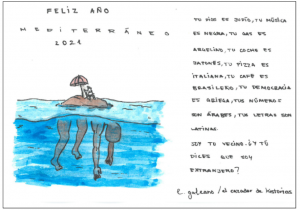 FELIZ AÑO
MEDITERRÁNEO
2021
TU DIOS ES JUDÍO, TU MÚSICA
ES NEGRA, TU GAS ES
ARGELINO, TU COCHE ES
JAPONÉS, TU PIZZA ES
ITALIANA, TU CAFÉ ES
BRASILEÑO, TU DEMOCRACIA
ES GRIEGA, TUS NÚMEROS
SON ÁRABES, TUS LETRAS SON
LATINAS.
SOY TU VECINO. ¿Y TÚ
DICES QUE SOY
EXTRANJERO?
/ el cazador de historias